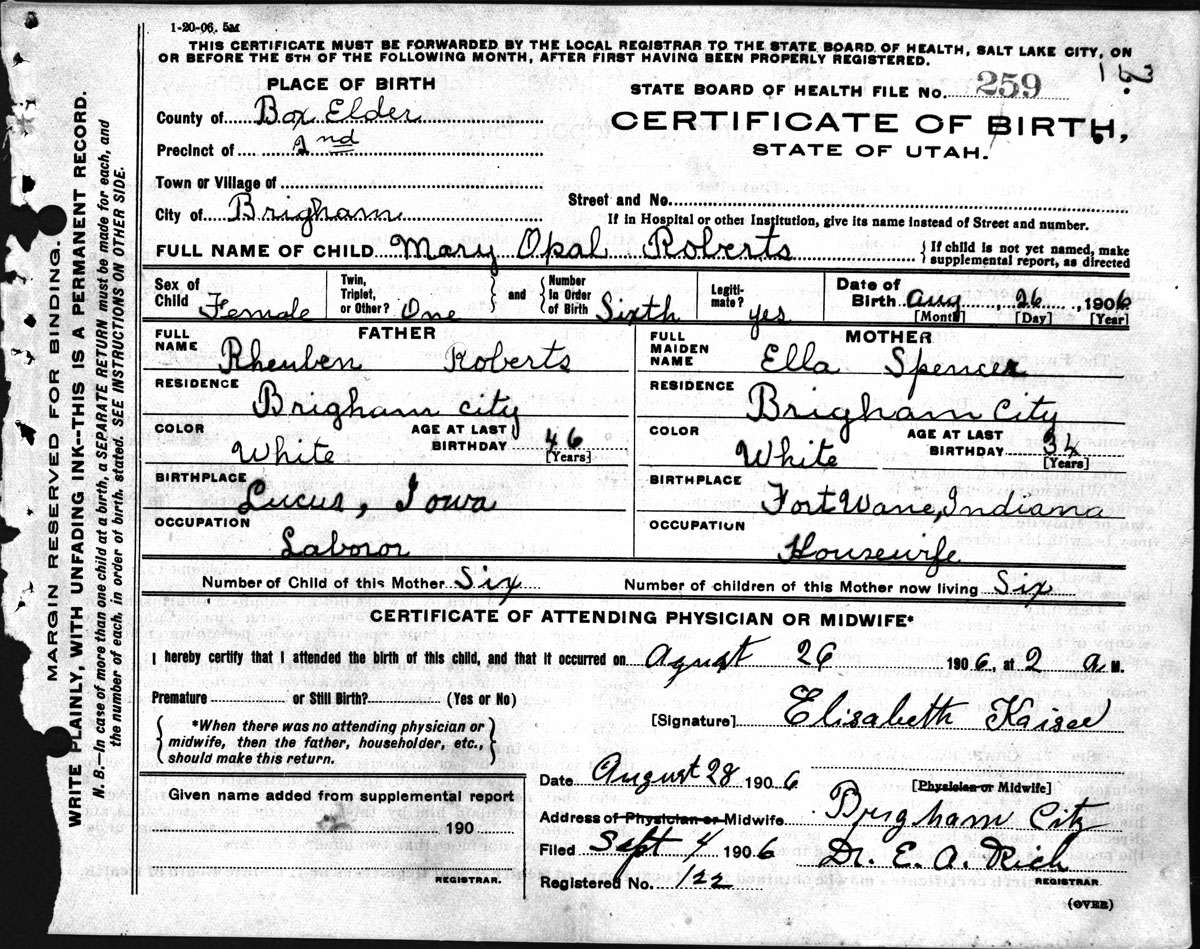 1-20-06. 5M
THIS CERTIFICATE MUST BE FORWARDED BY THE LOCAL REGISTRAR TO THE STATE BOARD OF HEALTH, SALT LAKE CITY, ON
OR BEFORE THE 5TH OF THE FOLLOWING MONTH, AFTER FIRST HAVING BEEN PROPERLY REGISTERED.
PLACE OF BIRTH
STATE BOARD OF HEALTH FILE No. 259
County of Box Elder
CERTIFICATE OF BIRTH,
Precinct of 2nd
STATE OF UTAH.
Town or Village of
Street and No.
City of Brigham
If in Hospital or other Institution, give its name instead of Street and number.
FULL NAME OF CHILD Mary Opal Roberts
{If child is not yet named, make
supplemental report, as directed
Sex of Child Female
Twin, Triplet, or Other? One
and
Number In Order of Birth Sixth
Legiti-mate? yes
Date of Birth Aug 26, 1906
[Month] [Day] [Year]
FATHER
FULL NAME Rheuben Roberts
RESIDENCE
Brigham city
COLOR White
AGE AT LAST BIRTHDAY 46
[Years]
BIRTHPLACE
Lucus, Iowa
OCCUPATION
Laboror
MOTHER
FULL MAIDEN NAME Ella Spencer
RESIDENCE
Brigham City
COLOR White
AGE AT LAST BIRTHDAY
[Years]
BIRTHPLACE
Fort Wane, Indiana
OCCUPATION
Housewife
Number of Child of this Mother Six
Number of children of this Mother now living Six
CERTIFICATE OF ATTENDING PHYSICIAN OR MIDWIFE*
I hereby certify that I attended the birth of this child, and that it occurred on Agust 26 1906, at 2 a M.
Premature or Still Birth? (Yes or No)
[Signature] Elisabeth
{*When there was no attending physician or
midwife, then the father, householder, etc.,
should make this return.}
Date August 28 1906
[Physician or Midwife]
Given name added from supplemental report
190
REGISTRAR.
Address of Physician or Midwife Brigham City
Filed Sept 4 1906
Dr. E. A. Rich
REGISTRAR.
Registered No. 122
(OVER)
MARGIN RESERVED FOR BINDING.
WRITE PLAINLY, WITH UNFADING INK--THIS IS A PERMANENT RECORD.
N. B.—In case of more than one child at a birth, a SEPARATE RETURN must be made for each, and
the number of each, in order of birth, stated. SEE INSTRUCTIONS ON OTHER SIDE.